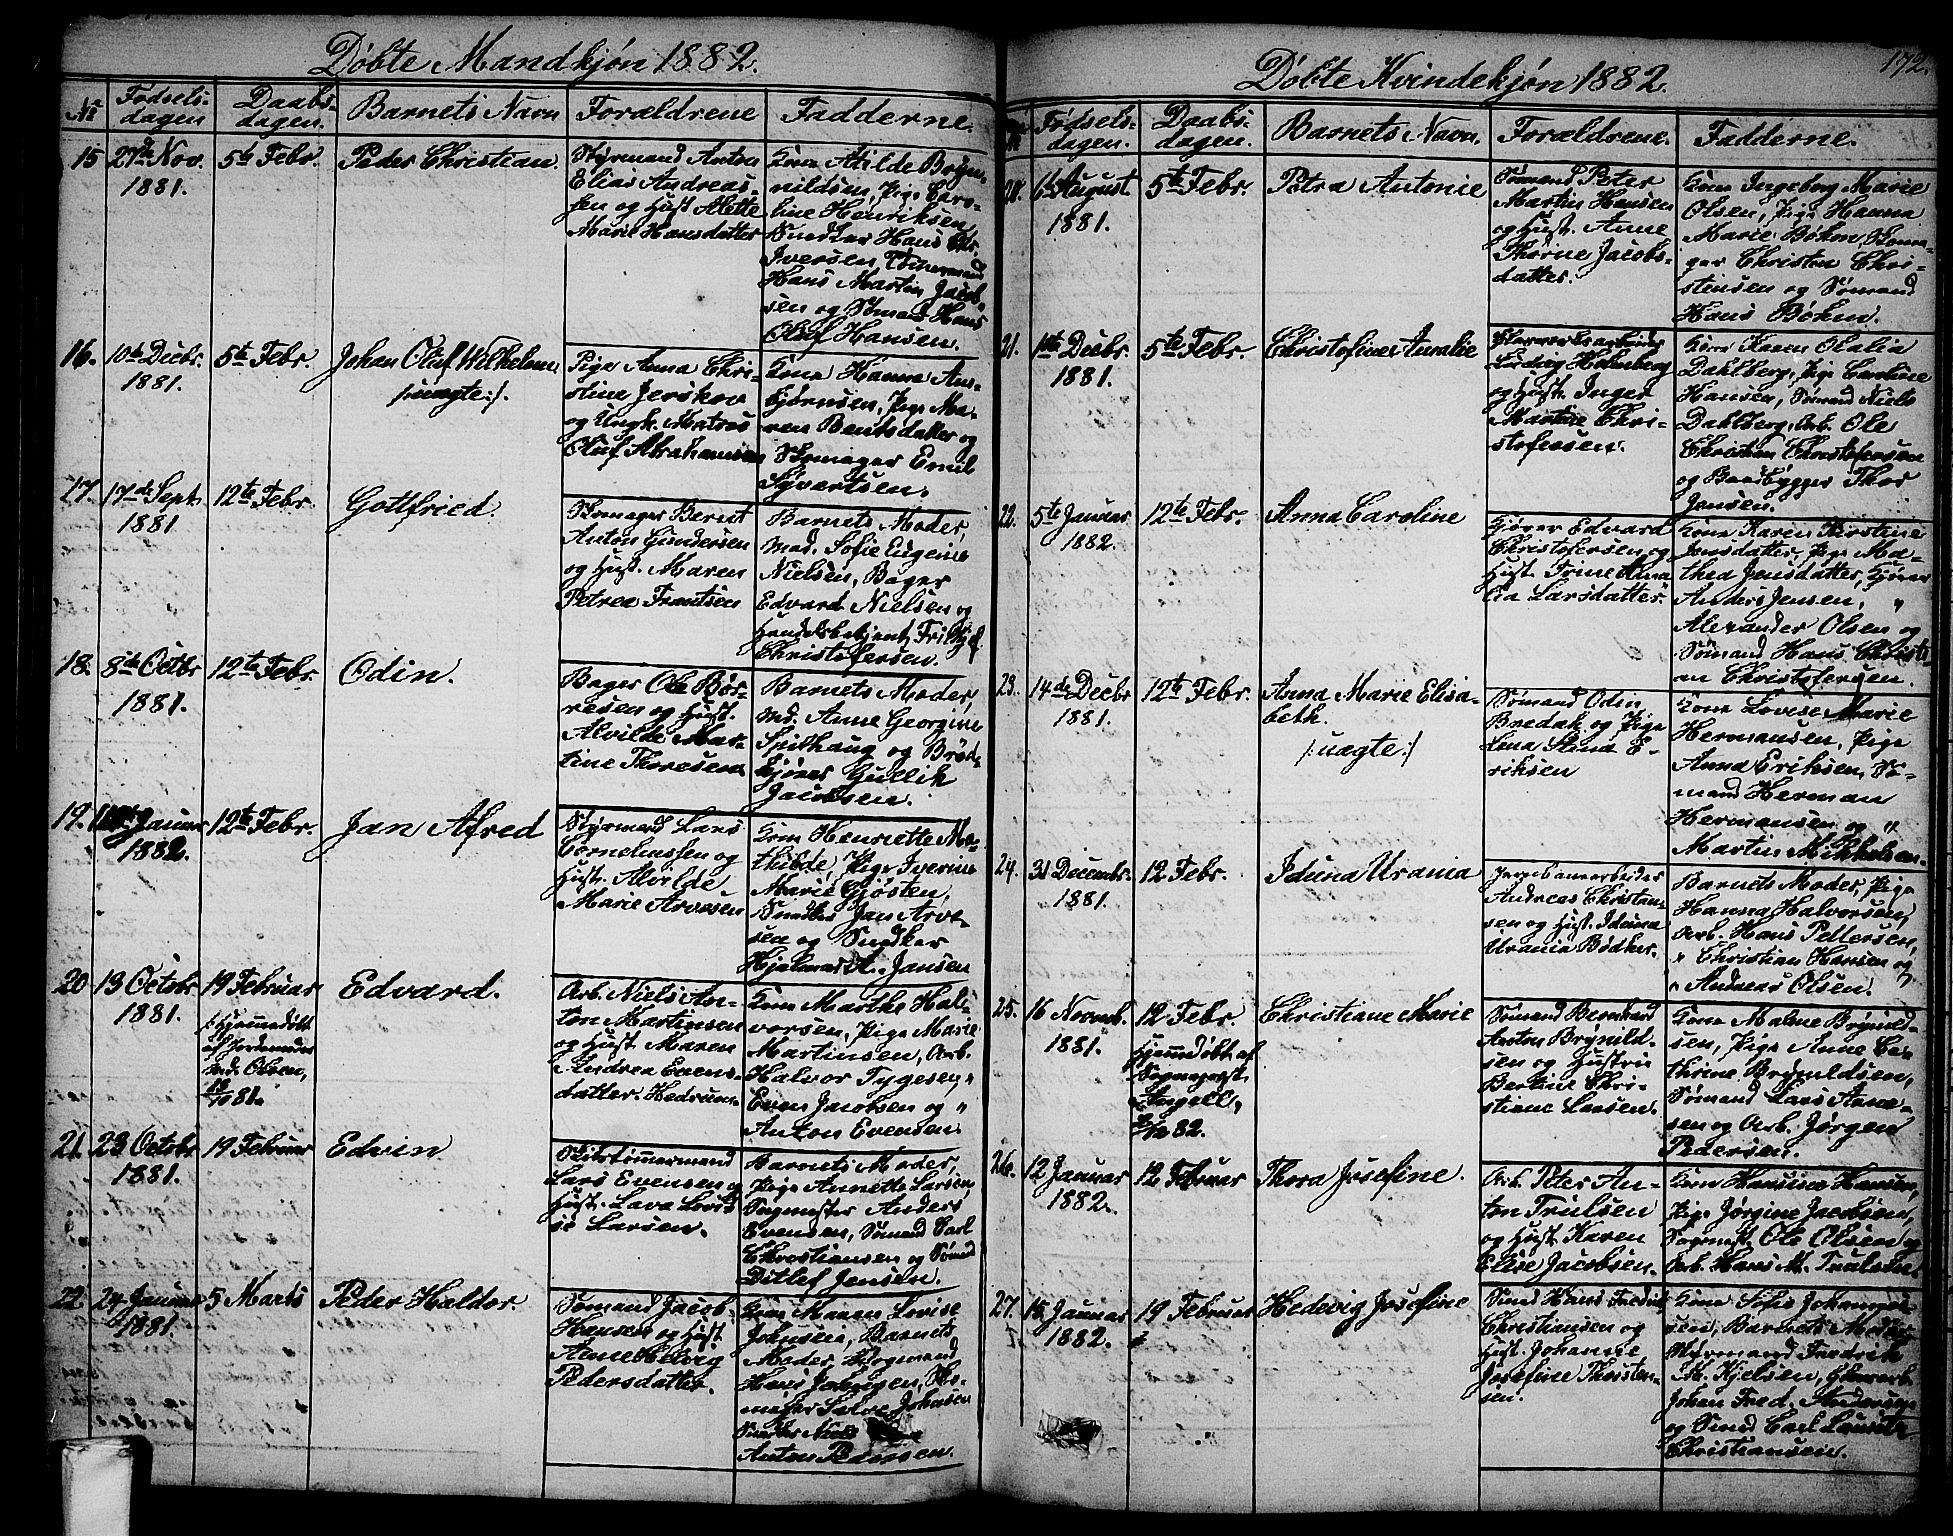 Døbte Mandkjøn 1882.
№ Fødselsdagen Daabsdagen. Barnets Navn Forældrene Fadderne.
15 27de Nov. 1881. 5te Febr. Peder Christian.
Styrmand Anton
Elias Andreas-
sen og Hust. Alette
Marie Hansdatter
Kone Milde Bryn-
nildsen, Pige Caro-
line Henriksen
Snedker Hans Chr.
Iversen, Tømermand
Hans Martin Jacob-
sen og Sømand Hans
Olaf Hansen.
16. 10de Decbr. 1881. 5te Febr. Johan Olaf Wilhelm
/:uægte:/.
Pige Anna Chri-
stine Jerskov
og Ungk. Matros
Oluf Abrahamsen
Kone Hanna Ans-
bjørnsen, Pige Ma-
ren Bentsdatter og
Skomager Emil
Syvartsen.
17. 17de Sept. 1881 12te Febr. Gottfried.
Skomager Bernt
Anton Gundersen
og Hust. Maren
Petrea Frantsen
Barnets Moder,
Mad. Sofie Eugenie
Nielsen, Bager
Edvard Nielsen og
Handelsbetjent Fritz
Christofersen.
18. 8de Octbr 1881. 12te Febr. Odin.
Bager Ole Bør-
resen og Hust.
Alvilde Mar-
tine Thoresen
Barnets Moder,
Md. Anne Georgine
Spithaug og Brød-
kjører Gullik
Jacobsen.
19. Januar 1882. 12te Febr. Jan Afred
Styrmand Lars
Corneliussen og
Hust. Alvilde
Marie Arvesen
Kone Henriette Ma-
thilde, Pige Iverine
Marie Gjøsten,
Snedker Jan Arve-
sen og Snedker
Hjalmar A. Jansen
20 13 Octobr 1881. 19 Februar Edvard.
/: Hjemmedøbt
af Jordemoder
Md. Olsen,
81.
Arb. Niels An-
ton Martinsen
og Hust. Maren
Andrea Evens-
datter. Hedrum.
Kone Marthe Hal-
vorsen, Pige Marie
Martinsen, Arb.
Halvor Tygesen, "
Even Jacobsen og "
Anton Evensen.
21. 23 Octobr 1881. 19 Februar Edvin
Skibstømmermand
Lars Evensen og
Hust. Lava Lovi-
se Larsen.
Barnets Moder,
Pige Annette Larsen,
Sagmester Anders
Evensen, Sømand Carl
Christiansen og Sømand
Ditlef Jensen.
22. 24 Januar 1881. 5 Marts Peder Haldor.
Sømand Jacob
Hansen og Hust
Anne Helvig
Pedersdatter.
Kone Maren Lovise
Johnsen, Barnets
Moder,
Hans Johnsen, Sko-
mager Johnsen
Snedker Niels
Anton Pedersen.
Døbte Kvindekjøn 1882. 172.
Fødselsdagen. Daabsdagen. Barnets Navn. Forældrene. Fadderne.
20. 6te August 1881. 5te Febr. Petra Antonie
Sømand Peter
Martin Hansen
og Hust. Anne
Thorine Jacobs-
datter.
Kone Ingeborg Marie
Olsen, Pige Hanna
Marie Bøhm, Skoma-
ger Christen Chri-
stensen og Sømand
Hans Bøhm.
21. 1ste Decbr. 1881. 5te Febr. Christofine Amalie
Ludvig Holmberg
og Hust. Inger
Martine Chri-
stofersen.
Kone Karen Olalia
Dahlberg, Pige Caroline
Hansen, Sømand Niels
Dahlberg, Arb. Ole
Christian Christofersen
og Baadbygger Thor
Jensen.
22. 5te Januar 1882. 12te Febr. Anna Caroline
Gjører Edvard
Christofersen og
Hust. Trine Ama-
lia Larsdatter.
Kone Karen Kirstine
Jensdatter, Pige Ma-
thea Jensdatter, Gjører
Anders Jensen, "
Alexander Olsen og
Sømand Hans Christi-
an Christofersen.
23. 14de Decbr 1881. 12te Febr. Anna Marie Elisa-
beth.
/:uægte:/
Sømand Odin
Bredak og Pige
Lena Stina E-
riksen
Kone Lovise Marie
Hermansen, Pige
Anna Eriksen, Sø-
mand Herman
Hermansen og "
Martin Mikkelsen.
24. 31 Decembr. 1881. 12 Febr. Iduna Urania
Andreas Christen-
sen og Hust. Iduna
Urania Bødker.
Barnets Moder, Pige
Hanna Halvorsen,
Arb. Hans Pettersen,
" Christian Hansen og
" Andreas Olsen.
25. 16 Novemb. 1881. 12 Febr. Christiane Marie
Hjemmedøbt af
Sogneprest
Angell,
82.
Sømand Bernhard
Anton Brynild-
sen og Hustru
Bertine Chri-
stiane Larsen.
Kone Malene Brynild-
sen, Pige Anne Ca-
thrine Brynildsen,
Sømand Lars Arne-
sen og Arb. Jørgen
Pedersen.
26. 12 Januar 1882. 12 Februar Thora Josefine.
Arb. Peter An-
ton Trulsen
og Hust. Karen
Elise Jacobsen.
Kone Hansine Hansen,
Pige Jørgine Jacobsen,
Sagmest. Ole Olsen og
Arb. Hans M. Trulsen.
27. 15 Januar 1882. 19 Februar Hedevig Josefine
Smed Hans Fredrik
Christiansen og
Hust. Johanne
Josefine Thorsten-
sen.
Kone Sofie Johannes-
sen, Barnets Moder,
Styrmand Fredrik
M. Kjelsen,
Johan Fred. Andersen
og Smed Carl Lauritz
Christiansen.